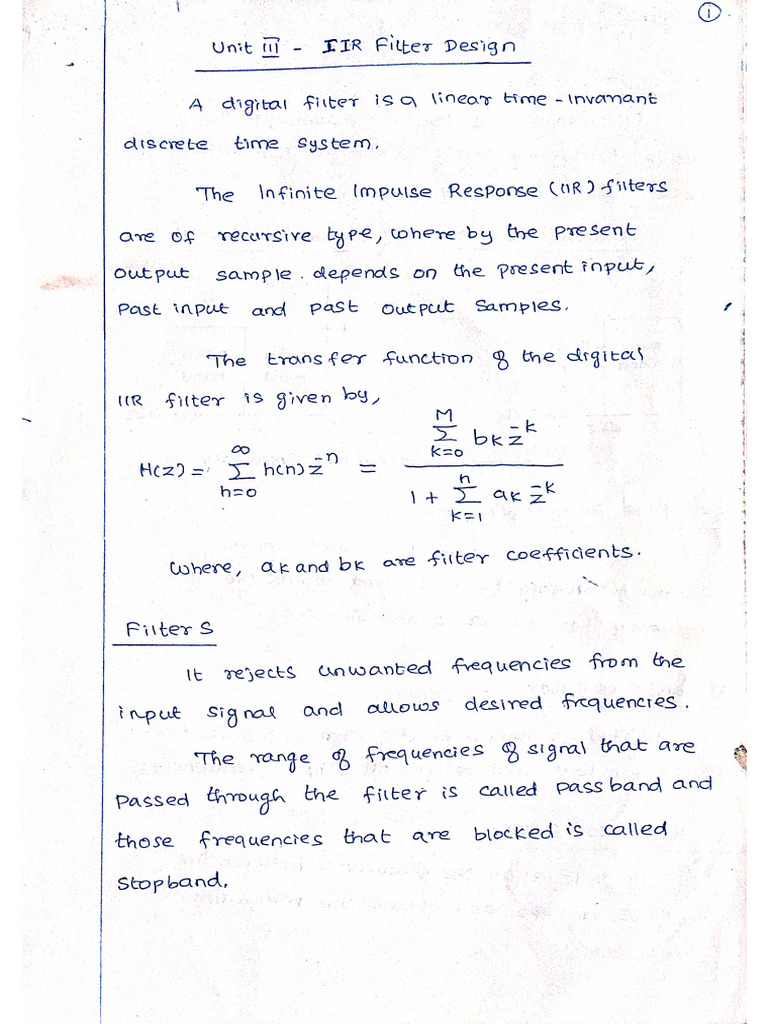 1
Unit III - IIR Filter Design
A digital filter is a linear time-invariant
discrete time system.
The Infinite Impulse Response (IIR) filters
are of recursive type, where by the present
output sample depends on the present input,
past input and past output samples.
The transfer function of the digital
IIR filter is given by,
H(z) = ∑_{n=0}^{∞} h(n) z^{-n} = \frac{∑_{k=0}^{M} b_k z^{-k}}{1 + ∑_{k=1}^{n} a_k z^{-k}}
where, ak and bk are filter coefficients.
Filters
It rejects unwanted frequencies from the
input signal and allows desired frequencies.
The range of frequencies of signal that are
passed through the filter is called passband and
those frequencies that are blocked is called
stopband.